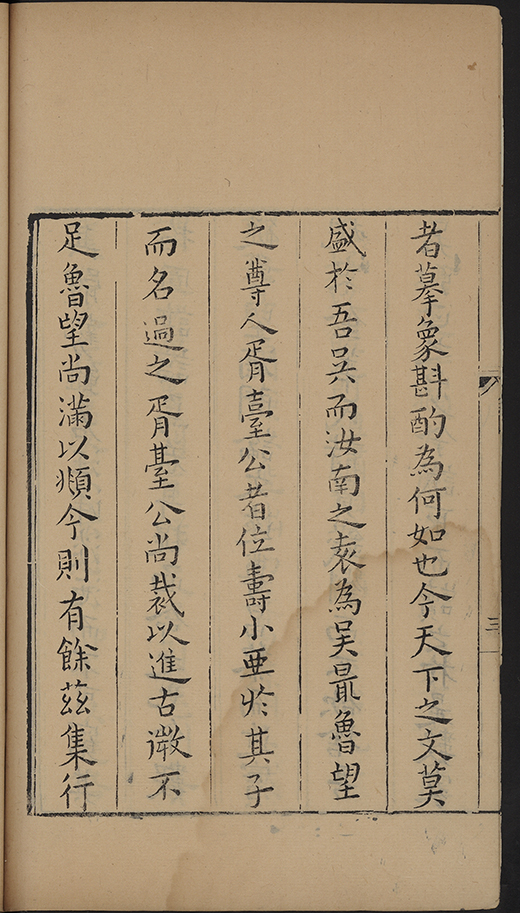 者摹象斟酌為何如也今天下之文莫
盛於吾吳而汝南之袁為吳最魯望
之尊人胥臺公者位壽小亞於其子
而名過之胥臺公尚裁以進古微不
足魯望尚滿以順今則有餘茲集行
三